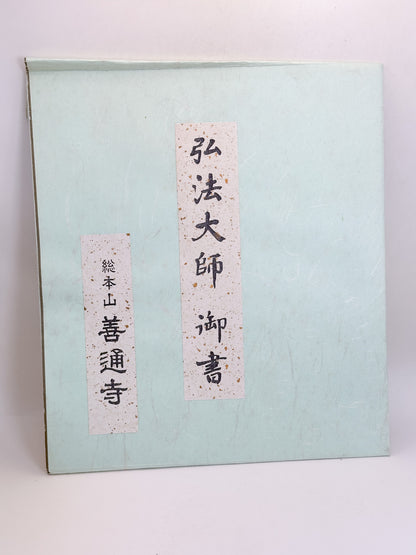 弘法大師 御書
総本山 善通寺